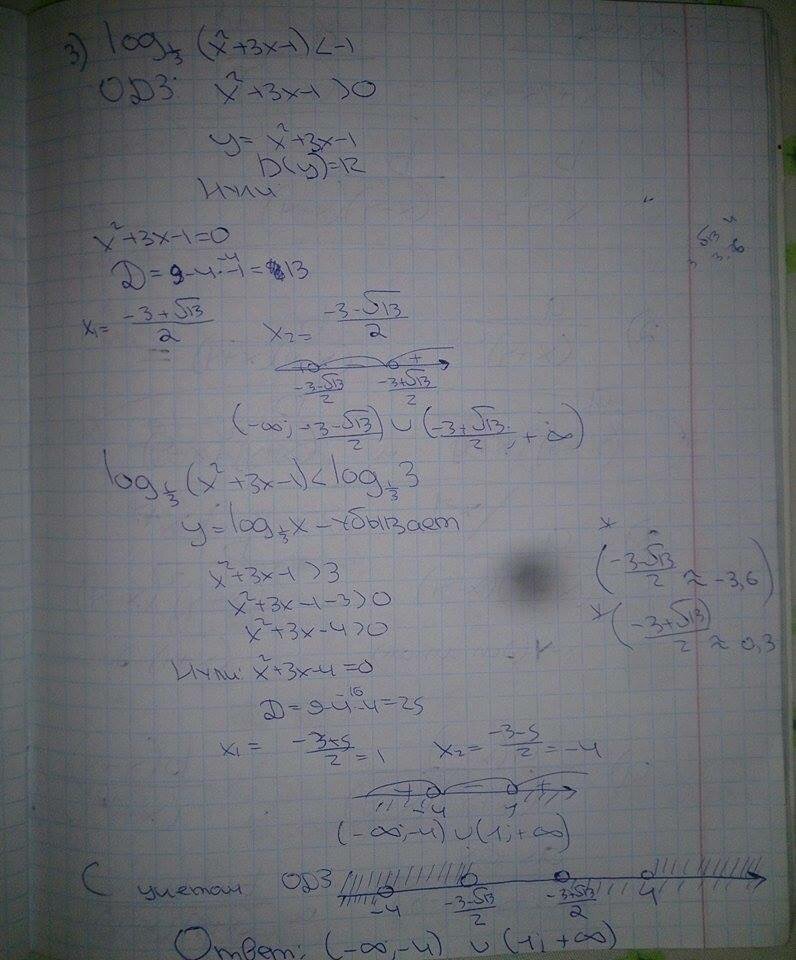 3) log_{1/3} (x²+3x-1) < -1
ОДЗ: x²+3x-1 >0
y= x²+3x-1
D(y)=R
Нули:
x²+3x-1=0
D= 9-4·-1= 13
x₁= (-3+√13)/2 x₂= (-3-√13)/2
+ - +
(-3-√13)/2 (-3+√13)/2
(-∞; (-3-√13)/2) ∪ ((-3+√13)/2; +∞)
log_{1/3} (x²+3x-1) < log_{1/3} 3
y= log_{1/3} x – убывает
x²+3x-1 >3
x²+3x-1-3>0
x²+3x-4>0
Нули: x²+3x-4=0
D= 9-4·-4=25
-16
x₁= (-3+5)/2 =1 x₂= (-3-5)/2 = -4
+ - +
-4 1
(-∞;-4) ∪ (1; +∞)
* ((-3-√13)/2 ≈ -3,6)
* ((-3+√13)/2 ≈ 0,3
С учетом ОДЗ
-4 (-3-√13)/2 (-3+√13)/2
Ответ: (-∞,-4) ∪ (1; +∞)